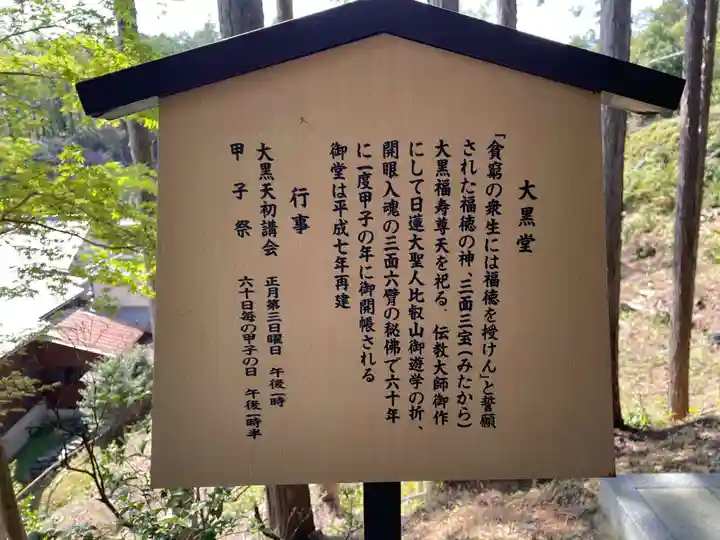 大黒堂
「貧窮の衆生には福徳を授けん」と誓願
された福徳の神、三面三宝(みたから)
大黒福寿尊天を祀る。伝教大師御作
にして日蓮大聖人比叡山御遊学の折、
開眼入魂の三面六臂の秘佛で六十年
に一度甲子の年に御開帳される
御堂は平成七年再建
行事
大黒天初講会 正月第三日曜日 午後一時
甲子祭 六十日毎の甲子の日 午後一時半